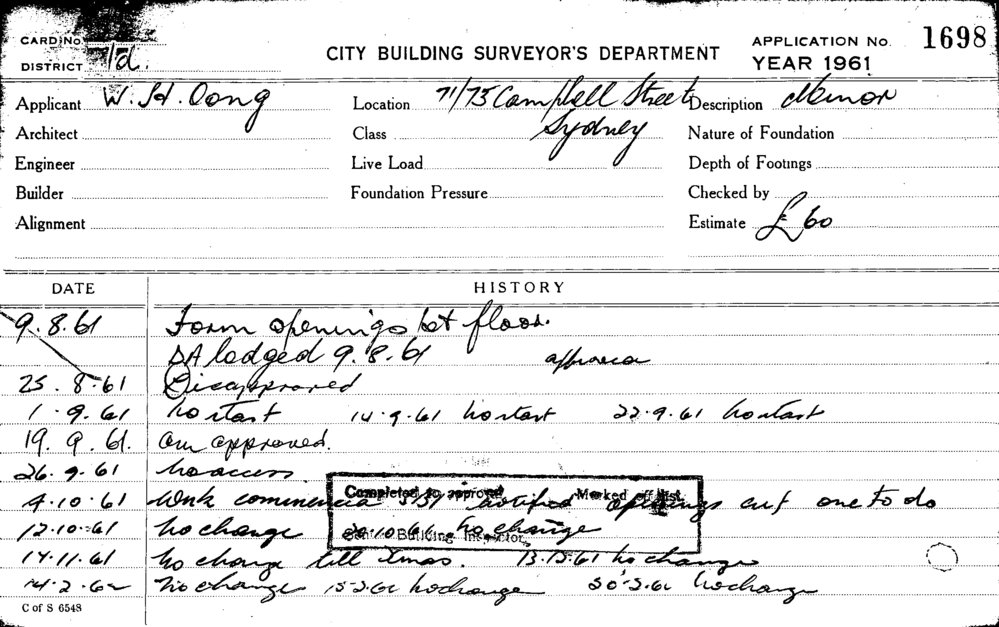 CARD No.
DISTRICT
CITY BUILDING SURVEYOR'S DEPARTMENT
APPLICATION No. 1698
YEAR 1961
Applicant W. H. Oong Location 71/75 Campbell Street Description Minor
Architect Class Sydney Nature of Foundation
Engineer Live Load Depth of Footings
Builder Foundation Pressure Checked by
Alignment Estimate £60
DATE HISTORY
9.8.61 Form openings bet floor.
DA lodged 9.8.61 approved
25.8.61 Disapproved
1.9.61 No start 14.9.61 No start 22.9.61 No start
19.9.61. approved.
26.9.61 No access
4.10.61 Work commenced notified openings cut one to do
Completed to approval Marked off list
12.10.61 No change No change
Building Inspector
14.11.61 No change till Xmas. 13.12.61 No change
No change No change No change
C of S 6548